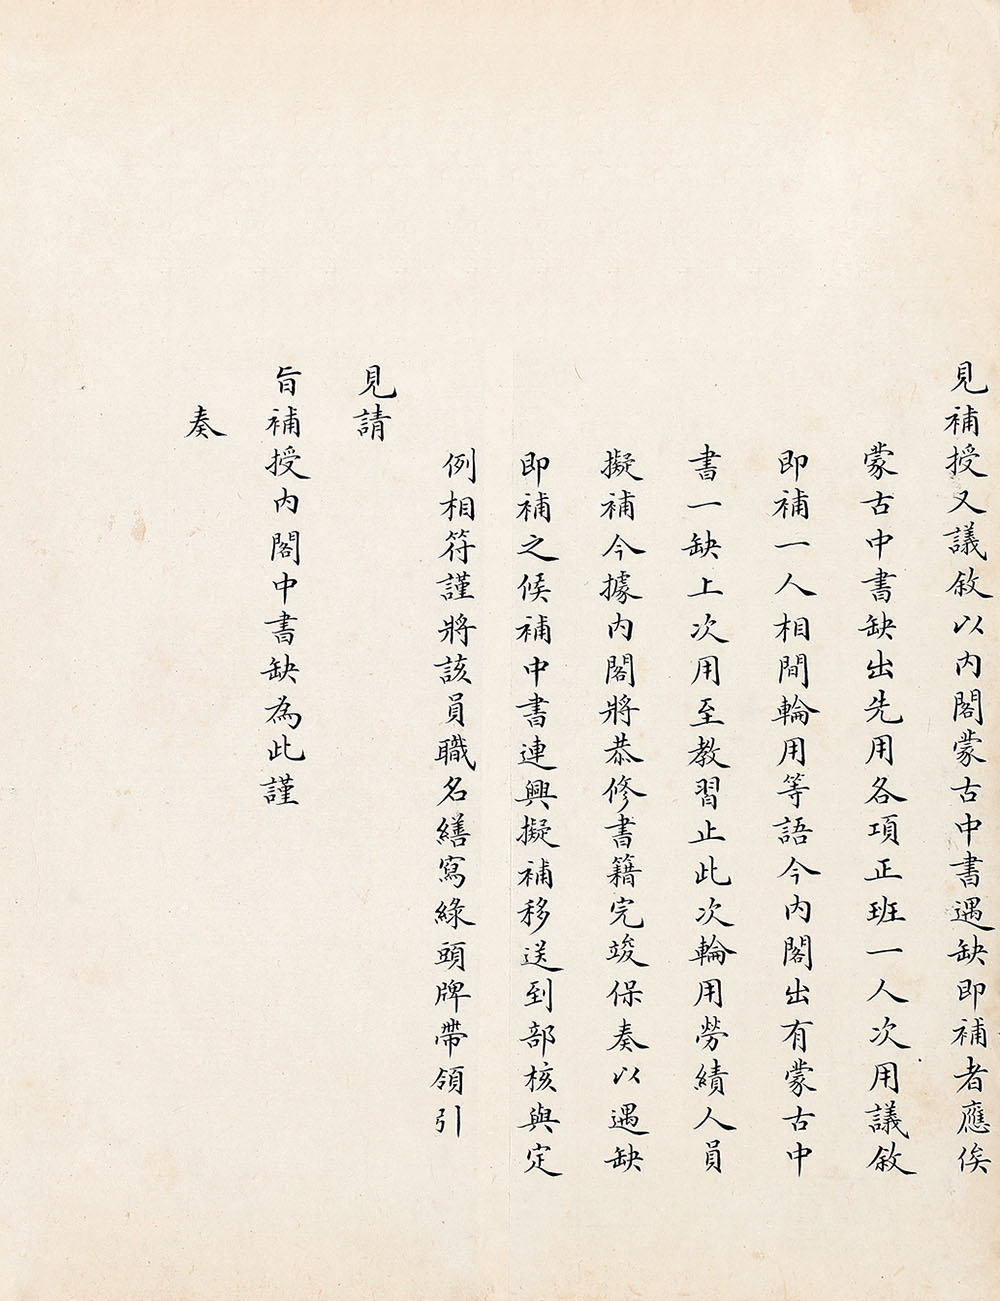 見補授又議敘以內閣蒙古中書遇缺即補者應俟
蒙古中書缺出先用各項正班一人次用議敘
即補一人相間輪用等語今內閣出有蒙古中
書一缺上次用至教習止此次輪用勞績人員
擬補今據內閣將恭修書籍完竣保奏以遇缺
即補之候補中書連興擬補移送到部核與定
例相符謹將該員職名繕寫綠頭牌帶領引
見請
旨補授內閣中書缺為此謹
奏